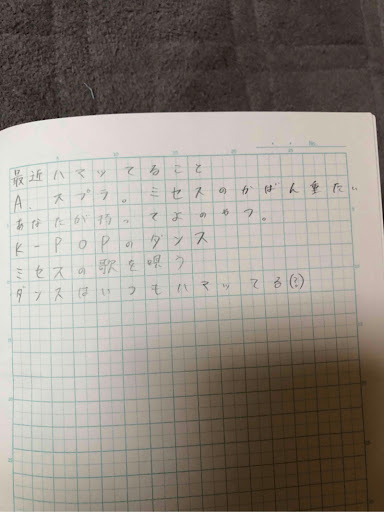 最近ハマッてること
A. スプラ。ミセスのかばん重たい
あなたが持ってよのやつ。
K-POPのダンス
ミセスの歌を唄う
ダンスはいつもハマッてる(?)